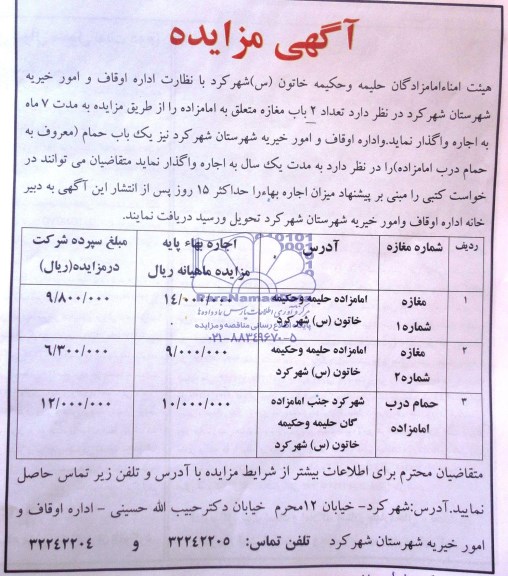 آگهی مزایده
هیئت امناءامامزادگان حلیمه وحکیمه خاتون (س)شهرکرد با نظارت اداره اوقاف و امور خیریه
شهرستان شهرکرد در نظر دارد تعداد ۲ باب مغازه متعلق به امامزاده را از طریق مزایده به مدت ۷ ماه
به اجاره واگذار نماید.واداره اوقاف و امور خیریه شهرستان شهرکرد نیز یک باب حمام (معروف به
حمام درب امامزاده)را در نظر دارد به مدت یک سال به اجاره واگذار نماید متقاضیان می توانند در
خواست کتبی را مبنی بر پیشنهاد میزان اجاره بهاءرا حداکثر ۱۵ روز پس از انتشار این آگهی به دبیر
خانه اداره اوقاف وامور خیریه شهرستان شهرکرد تحویل ورسید دریافت نمایند.
ردیف شماره مغازه آدرس اجاره بهاء پایه مبلغ سپرده شرکت
مزایده ماهیانه ریال درمزایده(ریال)
۱ مغازه امامزاده حلیمه وحکیمه ۱۴/۰۰۰/۰۰۰ ۹/۸۰۰/۰۰۰
شماره۱ خاتون (س) شهرکرد
پایگاه اطلاع رسانی مناقصه و مزایده
۰۲۱-۸۸۳۴۹۶۷۰-۵
۲ مغازه امامزاده حلیمه وحکیمه ۹/۰۰۰/۰۰۰ ۶/۳۰۰/۰۰۰
شماره۲ خاتون (س) شهرکرد
۳ حمام درب شهرکرد جنب امامزاده ۱۰/۰۰۰/۰۰۰ ۱۲/۰۰۰/۰۰۰
امامزاده گان حلیمه وحکیمه
خاتون (س) شهرکرد
متقاضیان محترم برای اطلاعات بیشتر از شرایط مزایده با آدرس و تلفن زیر تماس حاصل
نمایید.آدرس:شهرکرد- خیابان ۱۲محرم خیابان دکترحبیب الله حسینی - اداره اوقاف و
امور خیریه شهرستان شهرکرد تلفن تماس: ۳۲۲۴۲۲۰۵ و ۳۲۲۴۲۲۰۴